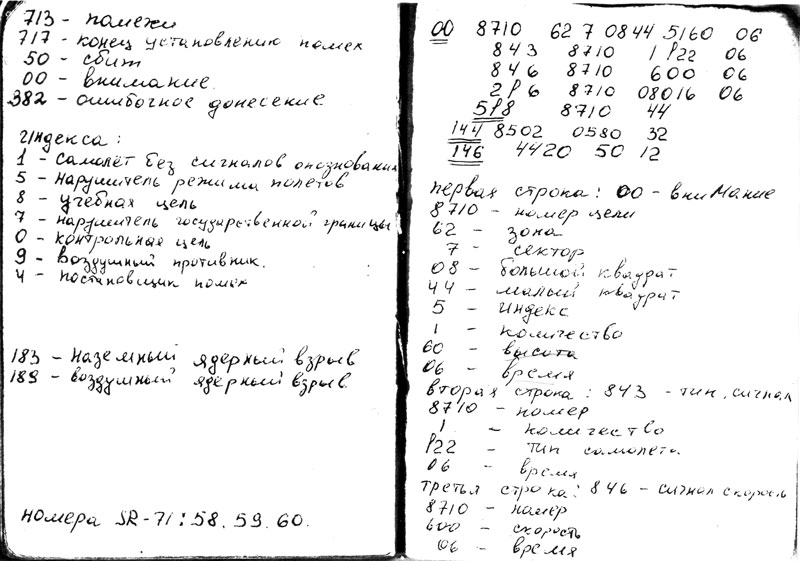 713 - помехи
717 - конец установлению помех
50 - сбит
00 - внимание.
382 - ошибочное донесение
Индекса:
1 - самолёт без сигналов опознования
5 - нарушитель режима полетов
8 - учебная цель
7 - нарушитель государственной границы
0 - контрольная цель
9 - воздушный противник.
4 - постановщик помех
183 - наземный ядерный взрыв
189 - воздушный ядерный взрыв.
номера SR-71: 58. 59. 60.
00 8710 62 7 0844 5160 06
843 8710 1 Р22 06
846 8710 600 06
2Р6 8710 08016 06
5Р8 8710 44
144 8502 0580 32
146 4420 50 12
первая строка: 00 - вниМание
8710 - номер цели
62 - зона
7 - сектор
08 - большой квадрат
44 - малый квадрат
5 - индекс
1 - количество
60 - высота
06 - время
вторая строка: 843 - тип. сигнал
8710 - номер
1 - количество
Р22 - тип самолета.
06 - время
третья строка: 846 - сигнал скорость
8710 - номер
600 - скорость
06 - время